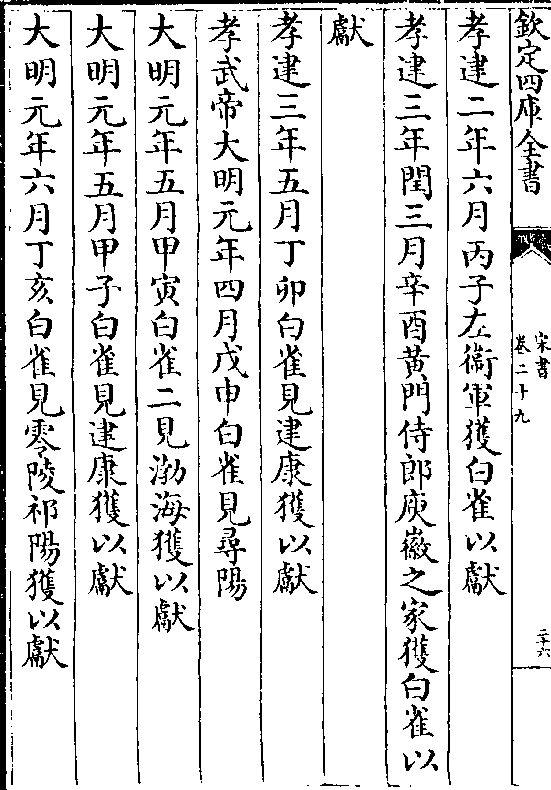 欽定四庫全書
宋書
卷二十九
二十六
孝建二年六月丙子左衞軍獲白雀以獻
孝建三年閏三月辛酉黄門侍郎庾徽之家獲白雀以
獻
孝建三年五月丁卯白雀見建康獲以獻
孝武帝大明元年四月戊申白雀見尋陽
大明元年五月甲寅白雀二見渤海獲以獻
大明元年五月甲子白雀見建康獲以獻
大明元年六月丁亥白雀見零陵祁陽獲以獻